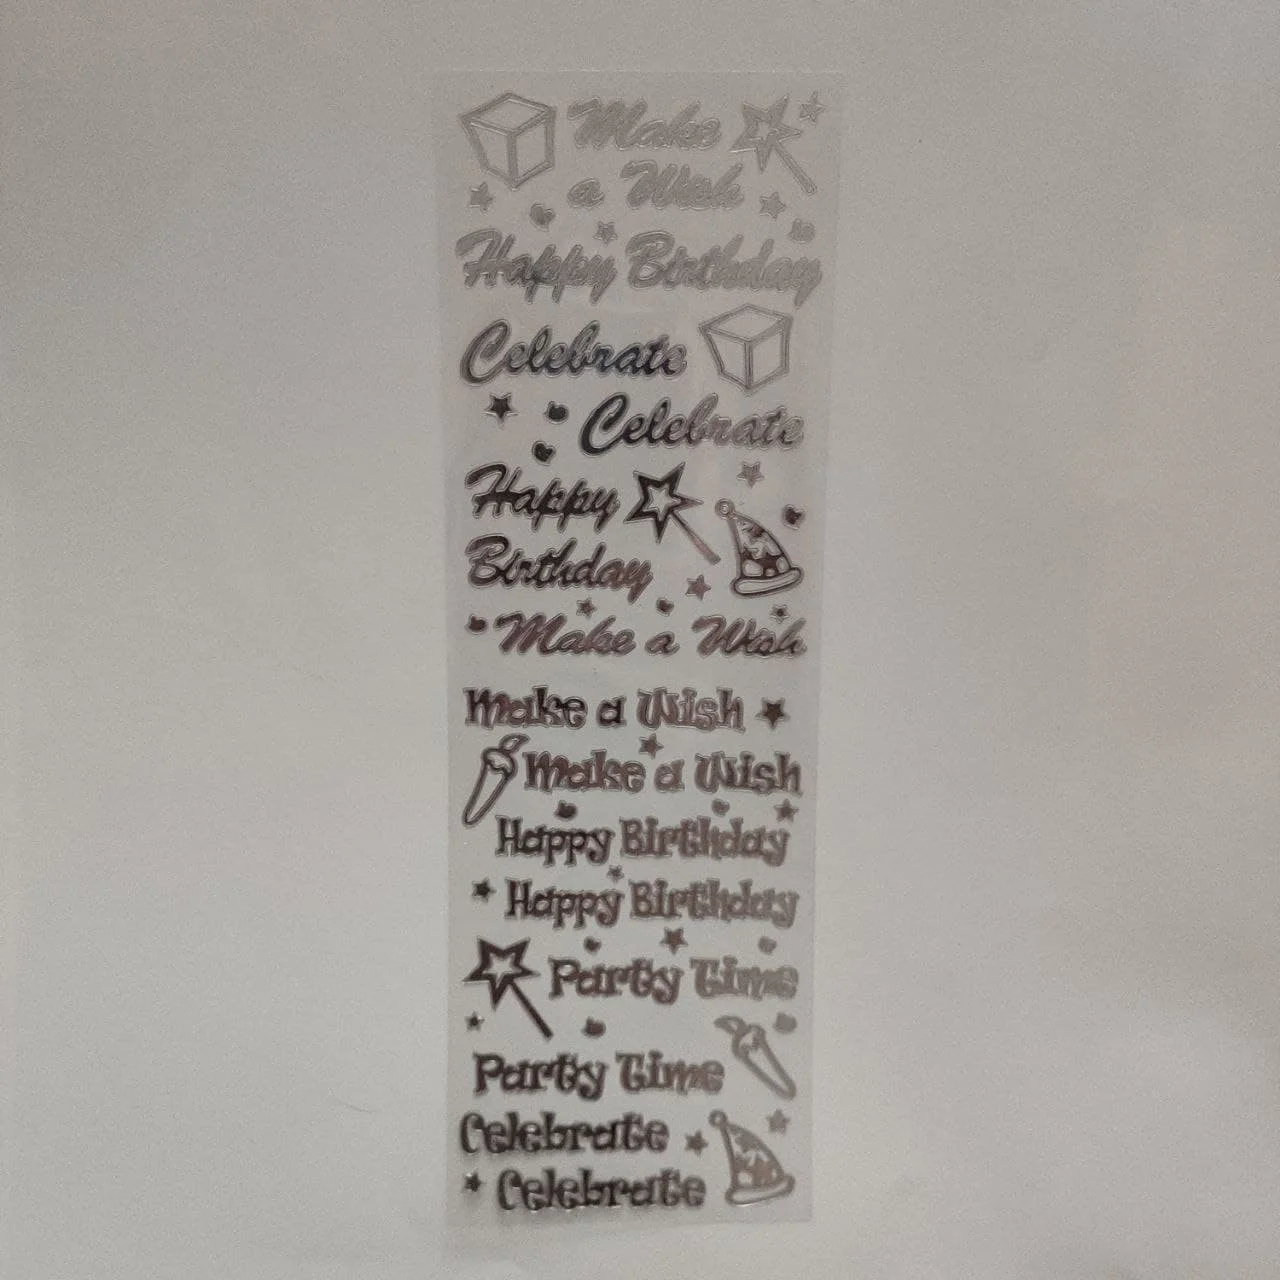 Make
a Wish
Happy Birthday
Celebrate
Celebrate
Happy
Birthday
Make a Wish
Make a Wish
Make a Wish
Happy Birthday
Happy Birthday
Party Time
Party Time
Celebrate
Celebrate